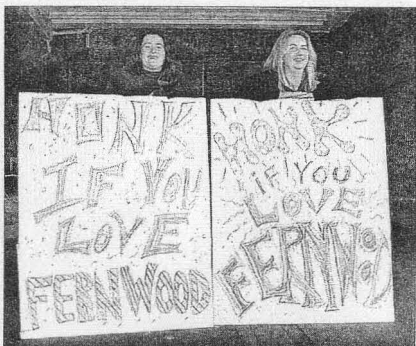 HONK
IF YOU
LOVE
FERNWOOD
HONK
IF YOU
LOVE
FERNWOOD